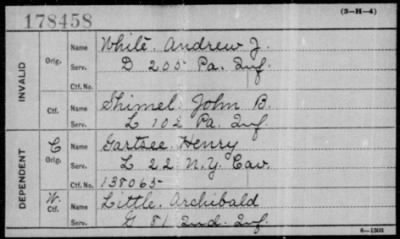 178458
(3-H-4)
INVALID
Orig.
Name White, Andrew J.
Serv. D 205 Pa. Inf.
Ctf. No.
Ctf.
Name Shimel John B.
Serv. L 102 Pa. Inf.
DEPENDENT
C
Orig.
Name Gartsee Henry
Serv. L 22 N.Y. Cav.
Ctf. No. 138065
W.
Ctf.
Name Little, Archibald
Serv. G 81 Ind. Inf.